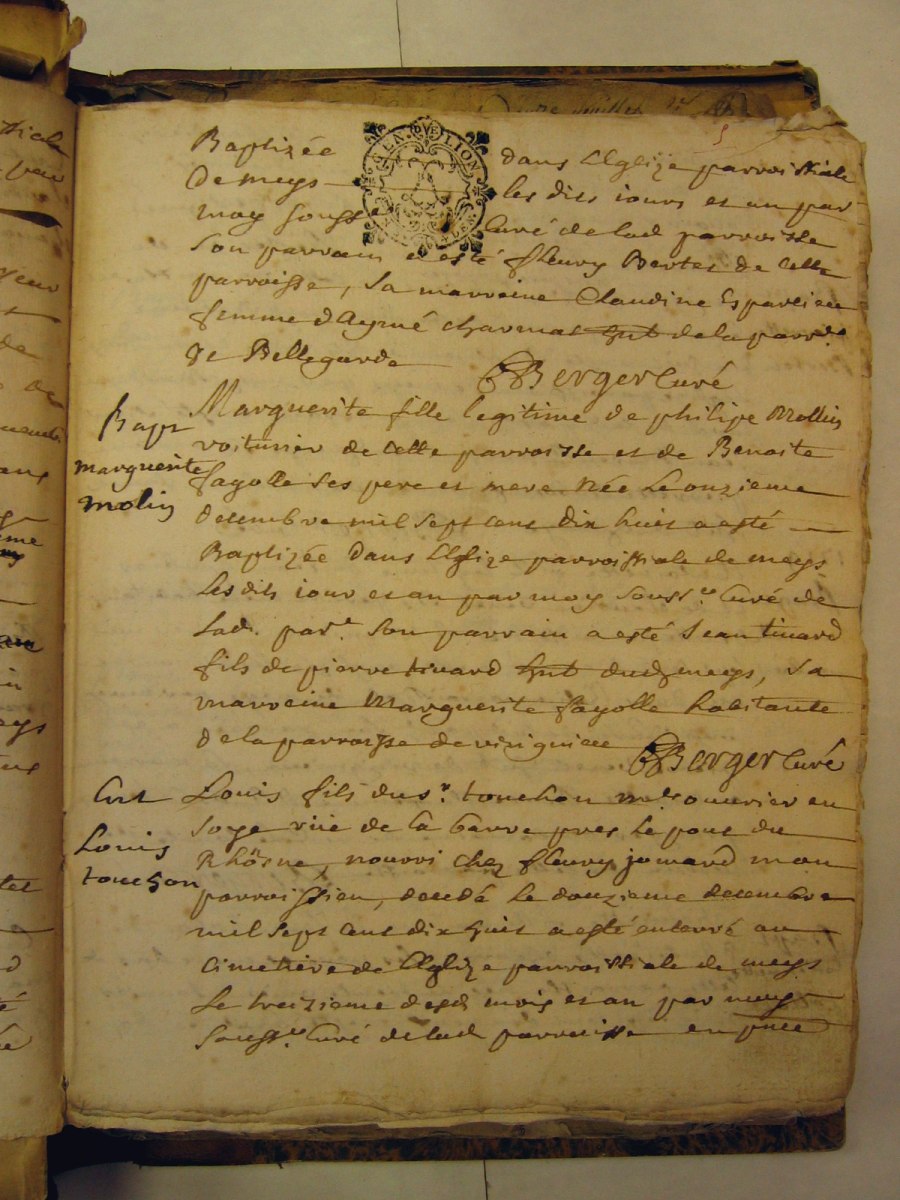 Baptizée dans L'Eglize parroissiale
De meys les dits iours et an par
moy souss Curé de lad parroisse
Son parrain a esté fleury Bertet de cette
parroisse, Sa marraine Claudine Esparcieu
femme d'Aymé charmat de la parr.
de Bellegarde Berger Curé
GEN. DE LION
Bapt
marguerite
molin
Marguerite fille legitime de philipe Mollin
voiturier de cette parroisse et de Benoite
fayolle Ses pere et mere Née Le onzieme
decembre mil sept cent dix huit a esté
Baptizée dans L'Eglize parroissiale de meys
Les dits iour et an par moy Souss.é Curé de
Lad. par.e Son parrain a esté Jean tivard
fils de pierre tivard dud meys, Sa
marraine Marguerite fayolle habitante
de la parroisse de Berger Curé
Ent
Louis
touchon
Louis fils du s.r touchon m.e ouvrier en
Soye rüe de la barre pres Le pont du
Rhösne, nourri chez fleury jomard mon
parroissien, decedé Le douzieme decembre
mil sept cent dix huit a esté enterré au
Cimetiere de L'Eglize parroissiale de meys
Le treizieme desd mois et an par moy
Souss.é Curé de lad parroisse en pnce